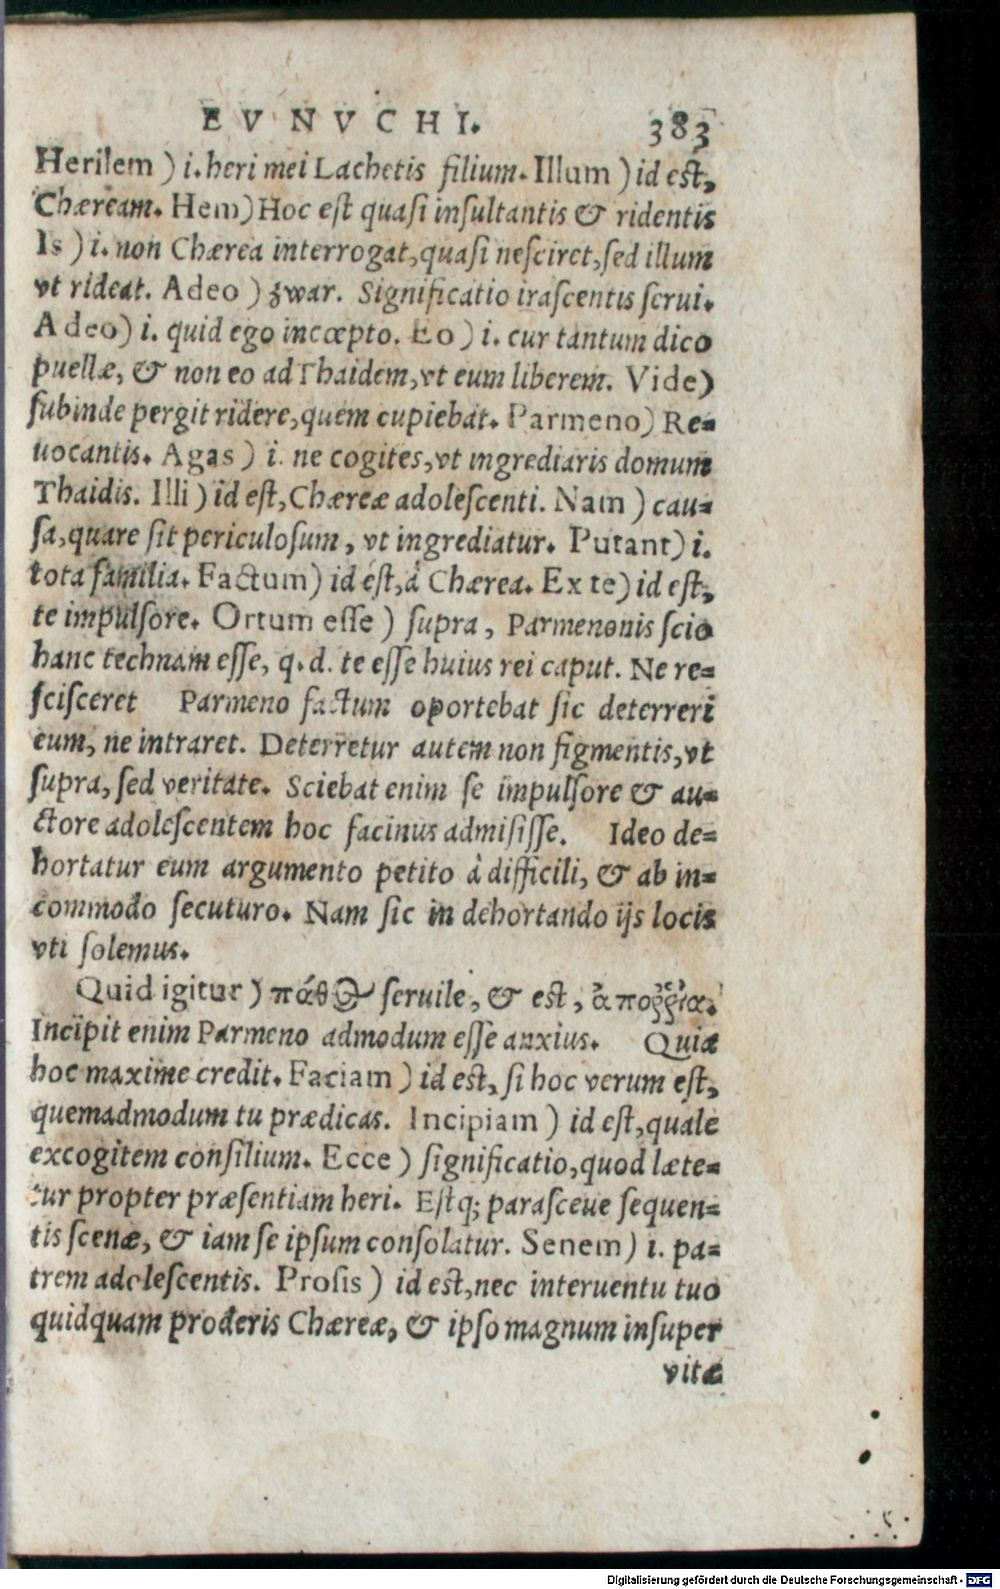 EVNVCHI. 383
Herilem ) i. heri mei Lachetis filium. Illum ) id est,
Chæream. Hem) Hoc est quasi insultantis & ridentis
Is ) i. non Chærea interrogat, quasi nesciret, sed illum
vt rideat. Adeo ) zwar. Significatio irascentis serui.
Adeo) i. quid ego incœpto. Eo ) i. cur tantum dico
puellæ, & non eo ad Thaidem, vt eum liberem. Vide)
subinde pergit ridere, quem cupiebat. Parmeno) Re-
uocantis. Agas ) i. ne cogites, vt ingrediaris domum
Thaidis. Illi ) id est, Chæreæ adolescenti. Nam ) cau-
sa, quare sit periculosum, vt ingrediatur. Putant) i.
tota familia. Factum) id est, à Chærea. Ex te) id est,
te impulsore. Ortum esse ) supra, Parmenonis scio
hanc technam esse, q. d. te esse huius rei caput. Ne re-
scisceret Parmeno factum oportebat sic deterreri
eum, ne intraret. Deterretur autem non figmentis, vt
supra, sed veritate. Sciebat enim se impulsore & au-
ctore adolescentem hoc facinus admisisse. Ideo de-
hortatur eum argumento petito à difficili, & ab in-
commodo secuturo. Nam sic in dehortando ijs locis
vti solemus.
Quid igitur ) πάθος seruile, & est, ἀποῤῥία.
Incipit enim Parmeno admodum esse anxius. Quia
hoc maxime credit. Faciam ) id est, si hoc verum est,
quemadmodum tu prædicas. Incipiam ) id est, quale
excogitem consilium. Ecce ) significatio, quod læte-
tur propter præsentiam heri. Estq; parasceue sequen-
tis scenæ, & iam se ipsum consolatur. Senem) i. pa-
trem adolescentis. Prosis ) id est, nec interuentu tuo
quidquam proderis Chæreæ, & ipso magnum insuper
vitæ
Digitalisierung gefördert durch die Deutsche Forschungsgemeinschaft - DFG